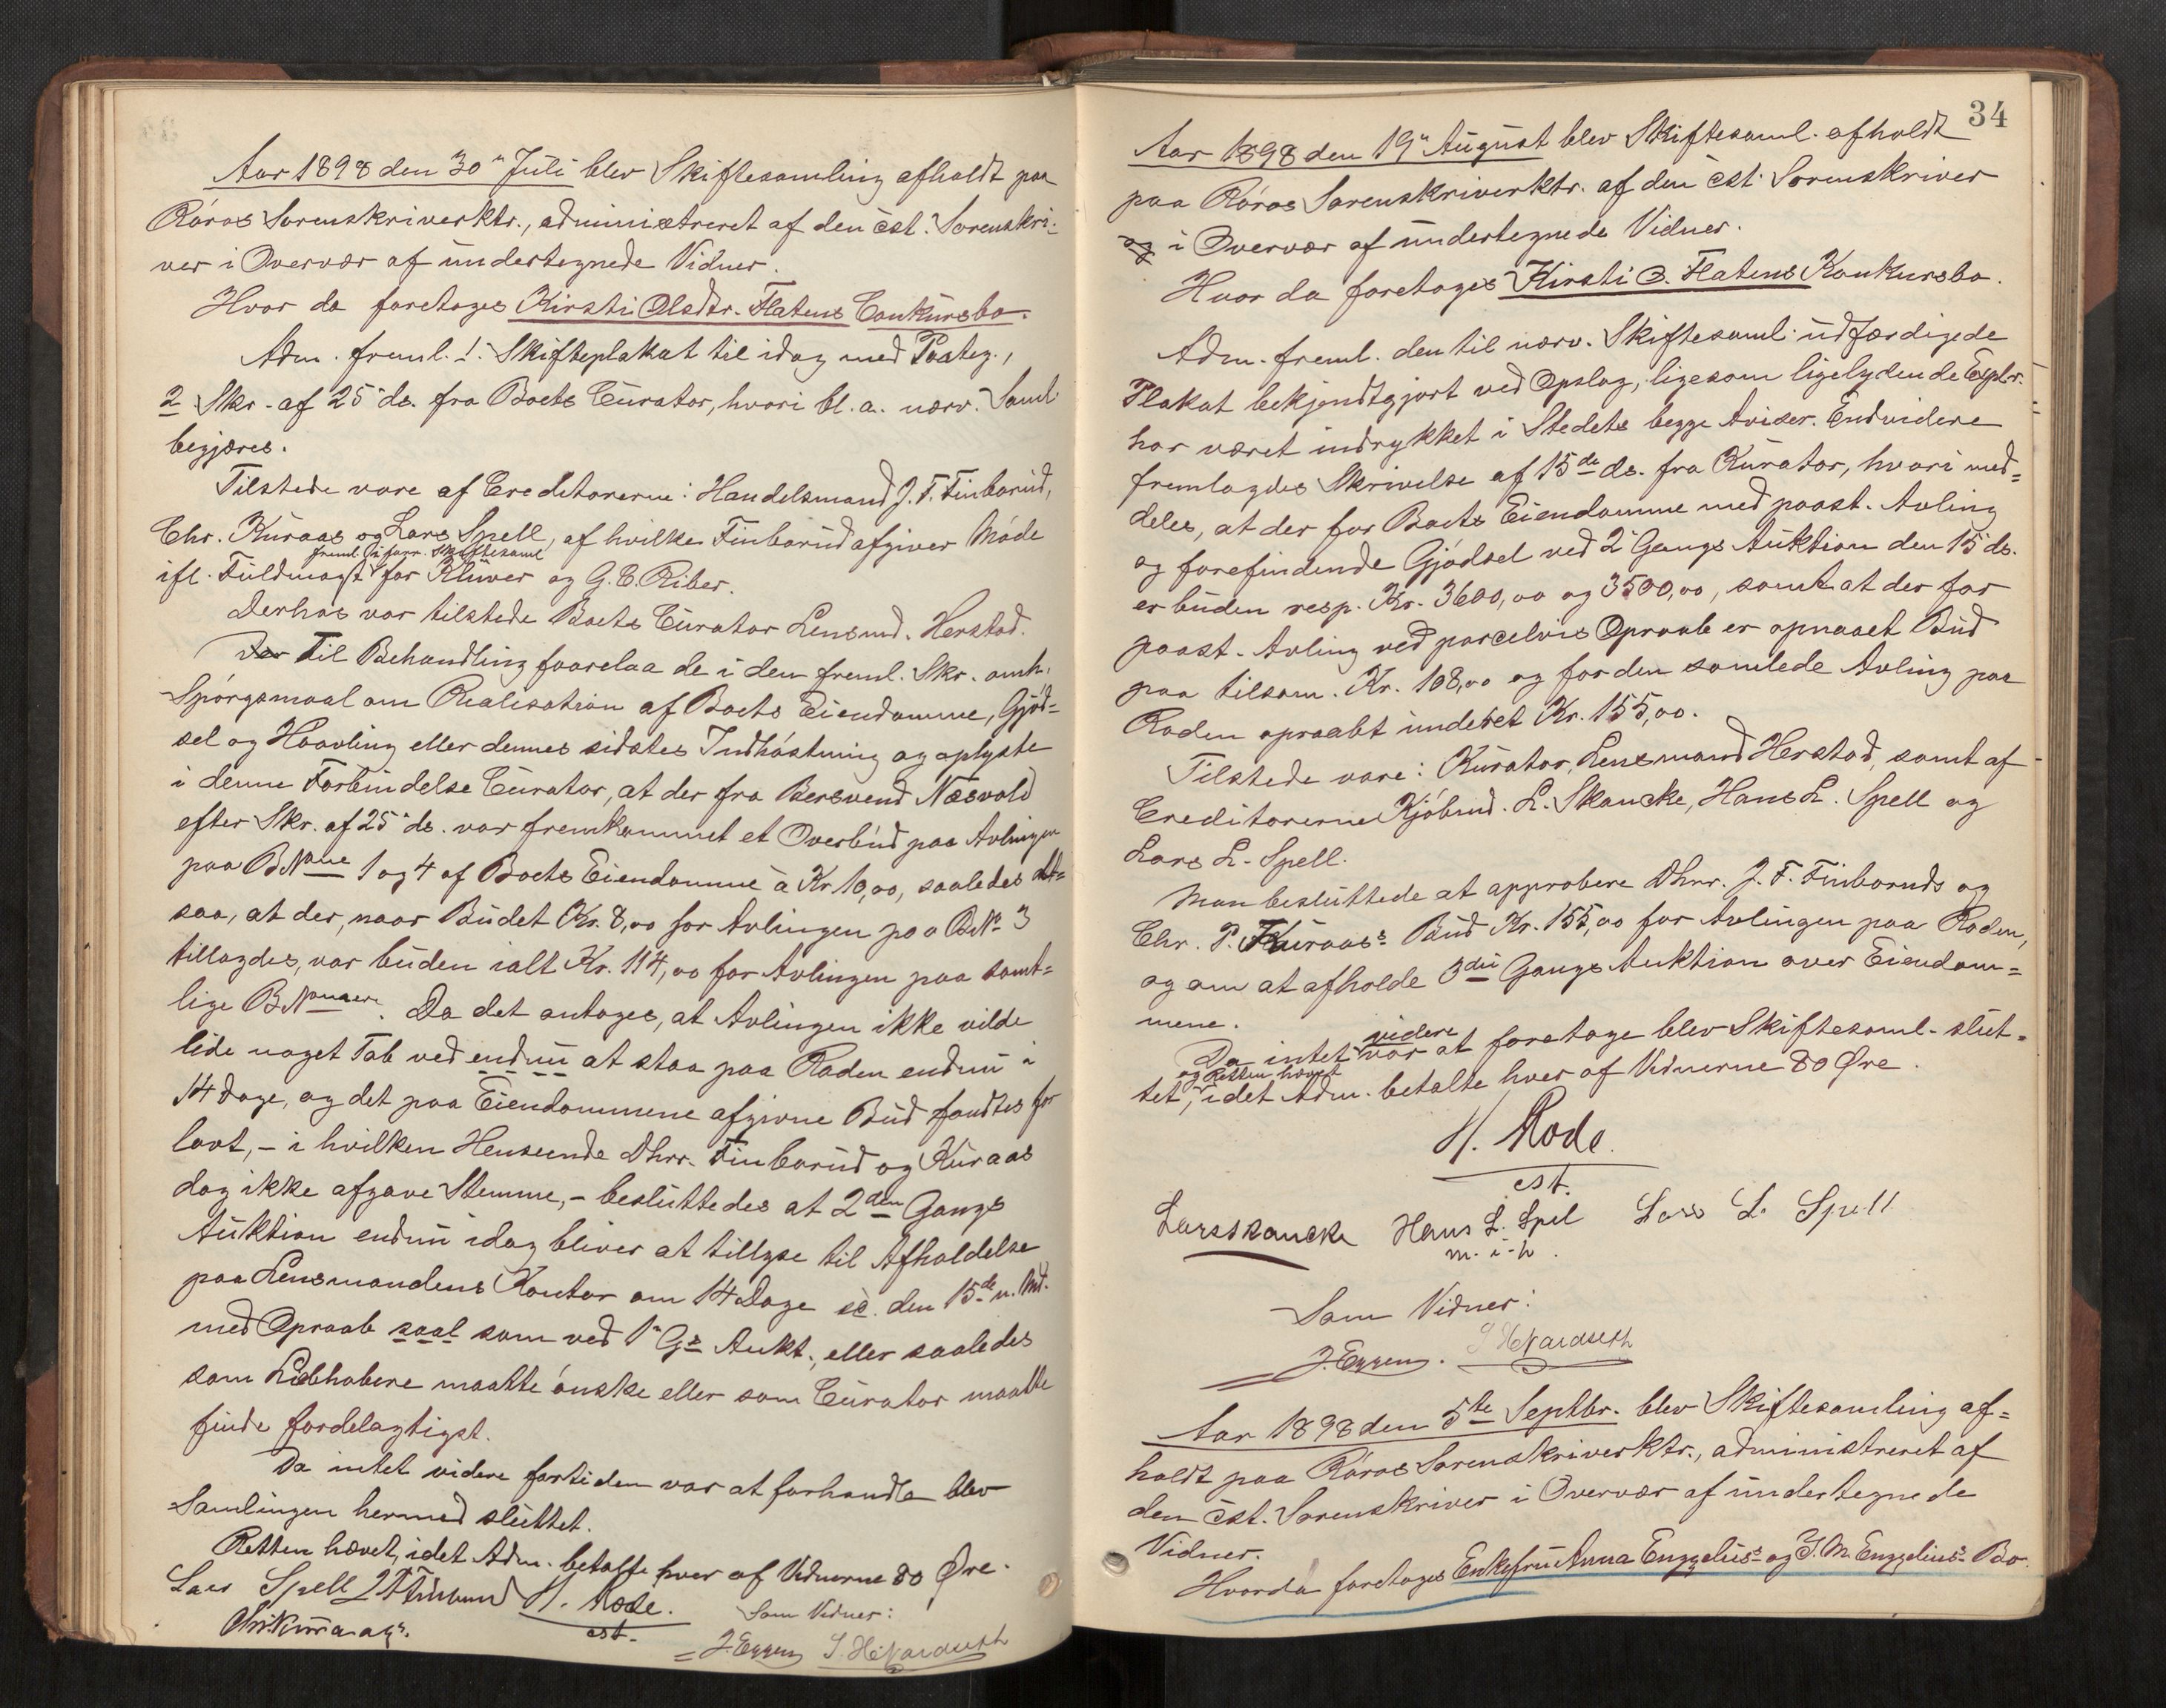 Aar 1898 den 30" Juli blev Skiftesamling afholdt paa
Röros Sorenskriverktr., administreret af den cst. Sorenskri-
ver i Overvær af undertegnede Vidner.
Hvor da foretoges Kirsti Olsdtr. Flatens Conkursbo.
Adm. freml. 1. Skifteplakat til idag med Paateg.,
2 Skr. af 25" ds. fra Boets Curator, hvori bl. a. nærv. Saml.
begjæres.
Tilstede vare af Creditorerne: Handelsmand J. F. Finborud,
Chr. Kuraas og Lars Spell, af hvilke Finborud afgiver Möde
freml. i forr. Skiftesaml.
ifl. Fuldmagt for Klüver og G. C. Riber.
Derhos var tilstede Boets Curator Lensmd. Herstad.
Der Til Behandling forelaa de i den freml. Skr. omh.
Spörgsmaal om Realisation af Boets Eiendomme, Gjöd=
sel og Haavling eller dennes sidstes Indhöstning og oplyste
i denne Forbindelse Curator, at der fra Bersvend Næsvold
efter Skr. af 25" ds. var fremkommet et Overbud paa Avlingen
paa BNo 1 og 4 af Boets Eiendomme à Kr. 10,00, saaledes alt=
saa, at der, naar Budet Kr. 8,00 for Avlingen paa BNo 3
tillagdes, var buden ialt Kr. 114,00 for Avlingen paa samt=
lige BN. Da det antoges, at Avlingen ikke vilde
lide noget Tab ved endnu at staa paa Roden endnu i
14 Dage, og det paa Eiendommene afgivne Bud fandtes for
lavt, – i hvilken Henseende Dhrr. Finborud og Kuraas
dog ikke afgave Stemme, – besluttedes at 2den Gangs
Auktion endnu idag bliver at tillyse til Afholdelse
paa Lensmandens Kontor om 14 Dage sc. den 15de n. Md.
med Opraab saal som ved 1" Gs Aukt., eller saaledes
som Liebhabere maatte önske eller som Curator maatte
finde fordelagtigst.
Da intet videre fortiden var at forhandle blev
Samlingen hermed sluttet.
Retten hævet, idet Adm. betalte hver af Vidnerne 80 Øre.
Lars Spell J F Finborud H. Rode.
cst.
Chr. Kuraas.
Som Vidner:
J. Eggen

34
Aar 1898 den 19" August blev Skiftesaml. afholdt
paa Röros Sorenskriverktr. af den cst. Sorenskriver
og i Overvær af undertegnede Vidner.
Hvor da foretoges Kirsti O. Flatens Konkursbo.
Adm. freml. den til nærv. Skiftesaml. udfærdigede
Plakat bekjendtgjort ved Opslag, ligesom ligelydende Explr.
har været indrykket i Stedets begge Aviser. Endvidere
fremlagdes Skrivelse af 15de ds. fra Kurator, hvori med=
deles, at der for Boets Eiendomme med paast. Avling
og forefindende Gjödsel ved 2" Gangs Auktion den 15 ds.
er buden resp. Kr. 3600,00 og 3500,00, samt at der for
paast. Avling ved parcelvis Opraab er opnaaet Bud
paa tilsam. Kr. 108,00 og for den samlede Avling paa
Roden opraabt underet Kr. 155,00.
Tilstede vare: Kurator, Lensmand Herstad, samt af
Creditorerne Kjöbmd. L. Skancke, Hans L. Spell og
Lars L. Spell.
Man besluttede at approbere Dhrr. J. F. Finboruds og
Chr. P. Kuraas's Bud Kr. 155,00 for Avlingen paa Roden,
og om at afholde 3die Gangs Auktion over Eiendom=
mene.
videre
Da intet var at foretage blev Skiftesaml. slut=
og Retten hævet
tet, idet Adm. betalte hver af Vidnerne 80 Øre.
H. Rode.
cst.
Lars Skancke Hans L. Spel Lars L. Spell
m. i. h.
Som Vidner:
J. Eggen.
Aar 1898 den 5te Septbr. blev Skiftesamling af=
holdt paa Röros Sorenskriverktr., administreret af
den cst. Sorenskriver i Overvær af undertegnede
Vidner.
Hvorda foretoges Enkefru Anna Enggelius's og I. M. Enggelius's Bo.